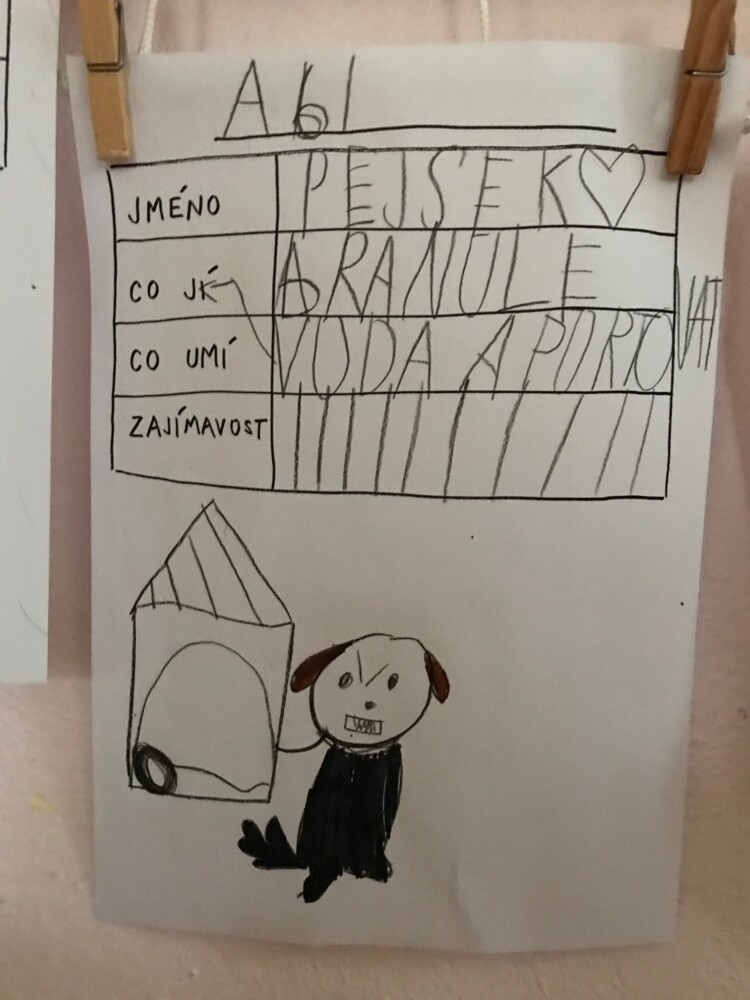 JMÉNO PEJSEK♡
CO JÍ GRANULE
CO UMÍ VODA APORTOVAT
ZAJÍMAVOST